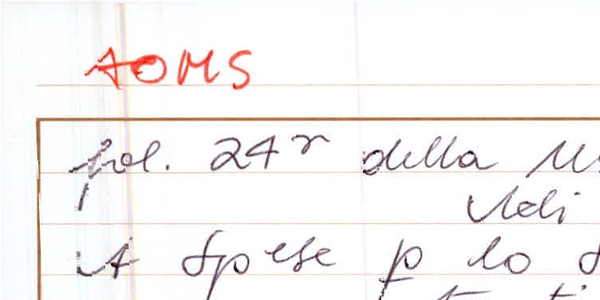 AOMS
fol. 24r della
Adi
A Spese p lo